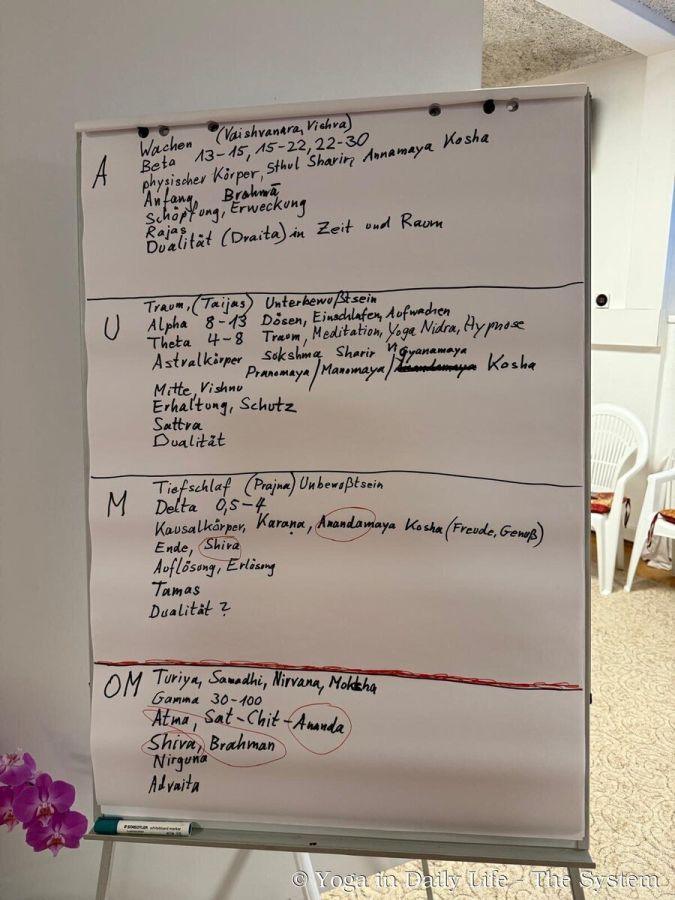 A
Wachen (Vaishvanara, Vishva)
Beta 13-15, 15-22, 22-30
physischer Körper, Sthul Sharir, Annamaya Kosha
Anfang, Brahmā
Schöpfung, Erweckung
Rajas
Dualität (Dvaita) in Zeit und Raum
U
Traum, (Taijas) Unterbewußtsein
Alpha 8-13 Dösen, Einschlafen, Aufwachen
Theta 4-8 Traum, Meditation, Yoga Nidra, Hypnose
Astralkörper sokshma Sharir Vigyanamaya
Pranomaya / Manomaya / Kosha
Mitte, Vishnu
Erhaltung, Schutz
Sattva
Dualität
M
Tiefschlaf (Prajna) Unbewußtsein
Delta 0,5-4
Kausalkörper, Karaṇa, Anandamaya Kosha (Freude, Genuß)
Ende, Shiva
Auflösung, Erlösung
Tamas
Dualität ?
OM
Turiya, Samadhi, Nirvana, Moksha
Gamma 30-100
Atma, Sat-Chit-Ananda
Shiva, Brahman
Nirguna
Advaita
STAEDTLER whiteboard marker
© Yoga in Daily Life - The System